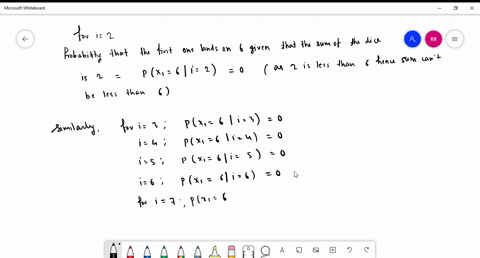 Microsoft Whiteboard
for i= 2
Probability that the first one lands on 6 given that the sum of the dice
is 2 = P(x₁=6 | i=2) = 0 ( as 2 is less than 6 hence sum can't
be less than 6)
Similarly, for i= 3 ; P(x₁=6 | i=3) = 0
i=4 ; P(x₁=6 | i=4) = 0
i=5 ; P(x₁=6 | i=5) = 0
i=6 ; P(x₁=6 | i=6) = 0
for i=7 ; P(x₁=6